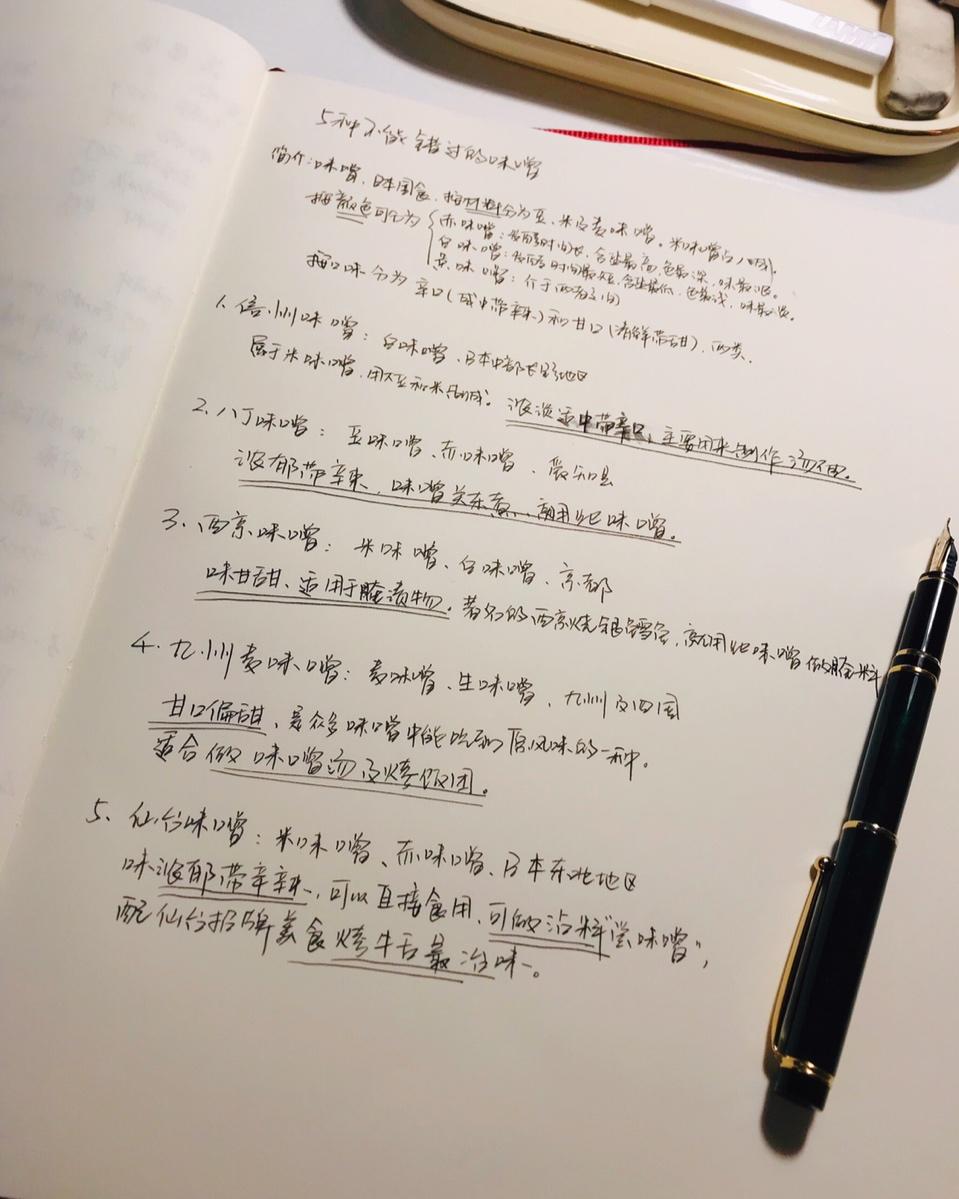 5种不能错过的味噌
简介:味噌、日本国食,按材料分为豆、米及麦味噌。米味噌占八成。
按颜色可分为
赤味噌:发酵时间长,含盐最高,色最深,味最浓。
白味噌:发酵时间最短,含盐最低,色最浅,味最淡。
味噌:介于两者之间
按口味分为辛口(咸中带辛辣)和甘口(清鲜带甜),两类。
1、信州味噌:白味噌、日本中部长野地区
属于米味噌,用大豆和米制成。浓淡适中带辛口,主要用来制作汤
2、八丁味噌:豆味噌、赤味噌、爱知县
浓郁带辛辣,味噌关东煮、就用此味噌。
3、西京味噌:米味噌、白味噌、京都
味甘甜、适用于腌渍物。著名的西京烧银鳕鱼,就用此味噌做腌料
4、九州麦味噌:麦味噌、生味噌、九州及四国
甘口偏甜,是众多味噌中能吃到原风味的一种。
适合做味噌汤及烤饭团。
5、仙台味噌:米味噌、赤味噌、日本东北地区
味浓郁带辛辣,可以直接食用,可做沾料“尝味噌”,
配仙台招牌美食烤牛舌最 味。